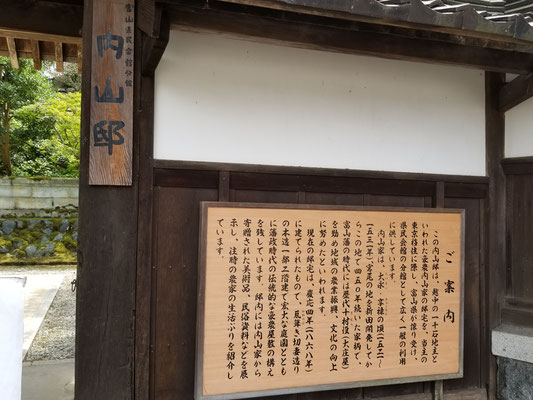 富山県民会館分館
内山邸
ご案内
この内山邸は、越中の一千石地主と
いわれた豪農内山家の邸宅を、当主の
東京移住に際し、富山県が譲り受け、
県民会館の分館として広く一般の利用
に供しています。
内山家は、大永・享禄の頃(一五二一〜
一五三一年)、宮尾の地を新田開発してか
らこの地で四五〇年続いた家柄で、
富山藩の時代には歴代十村役(大庄屋)
を勤め地域の農業振興、文化の向上
に努めたといわれます。
現在の邸宅は、慶応四年(一八六八年)
に建てられたもので、瓦葺き切妻造り
の木造一部二階建て宏大な庭園ととも
に藩政時代の伝統的な豪農屋敷の構え
を残しています。邸内には内山家から
寄贈された美術品、民俗資料などを展
示し、往時の豪家の生活ぶりを紹介し
ています。